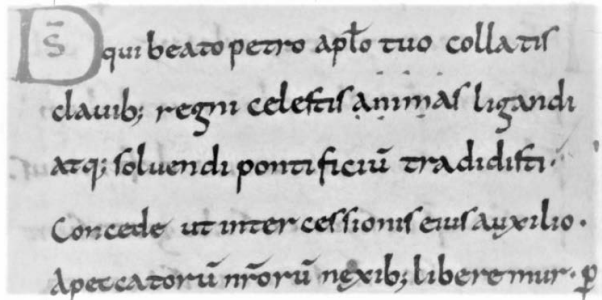 D̅S̅ qui beato petro apło tuo collatis
clauib; regni celestis animas ligandi
atq; soluendi pontificiū tradidisti·
Concede ut intercessionis eius auxilio·
Apeccatorū nr̄orū nexib; liberemur· ꝑ